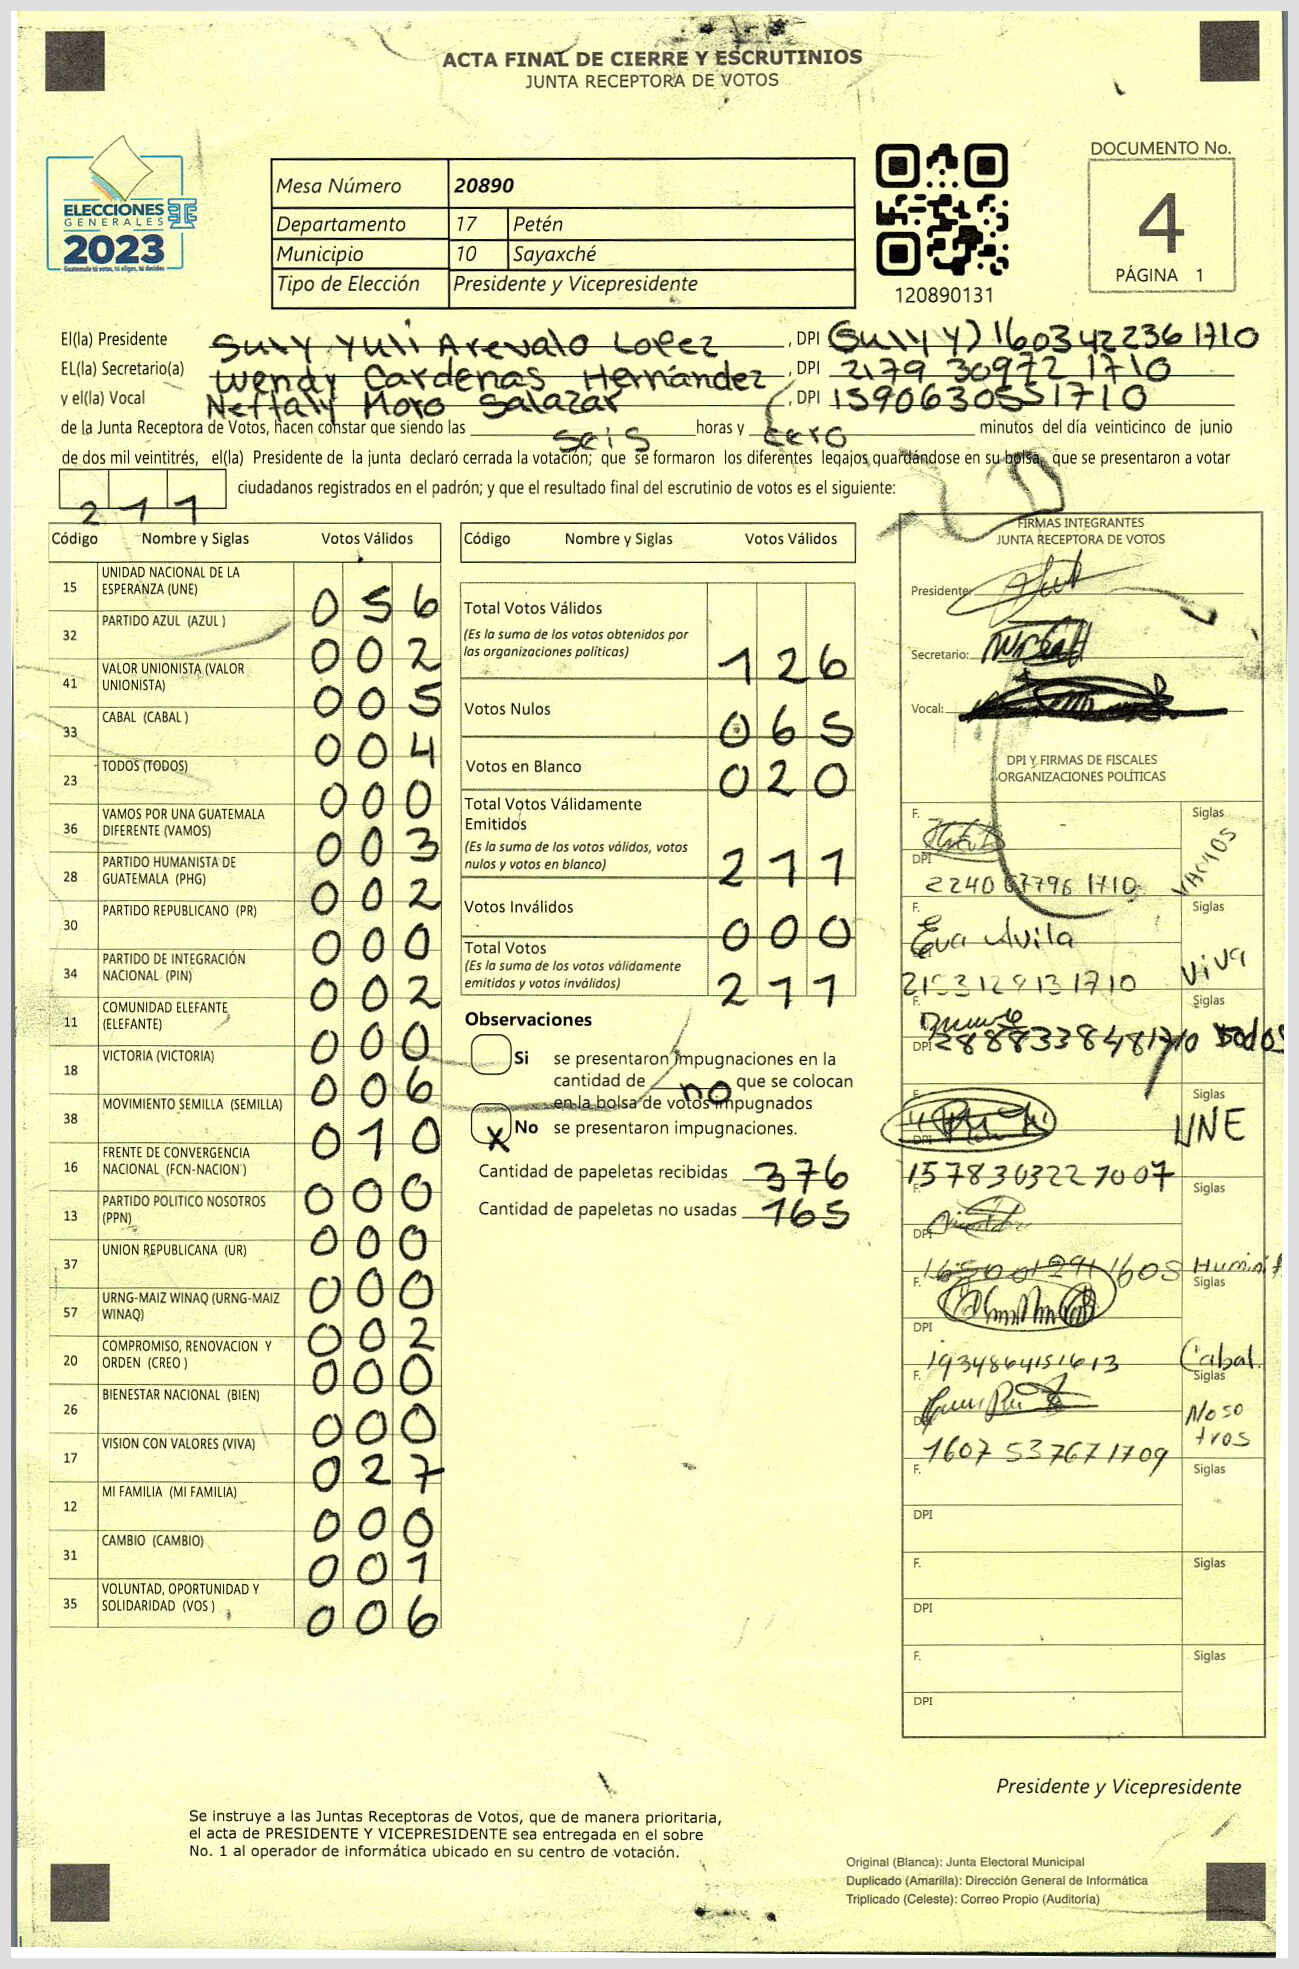 ACTA FINAL DE CIERRE Y ESCRUTINIOS
JUNTA RECEPTORA DE VOTOS
ELECCIONES
GENERALES
2023
Guatemala tú votas, tú eliges, tú decides
Mesa Número 20890
Departamento 17 Petén
Municipio 10 Sayaxché
Tipo de Elección Presidente y Vicepresidente
120890131
DOCUMENTO No.
4
PÁGINA 1
El(la) Presidente Suly Yuli Arevalo Lopez, DPI (Suly Y) 160342236 1710
EL(la) Secretario(a) Wendy Cardenas Hernández, DPI 2179 30972 1710
y el(la) Vocal Neftaly Moro Salazar, DPI 1590630551710
de la Junta Receptora de Votos, hacen constar que siendo las seis horas y cero minutos del día veinticinco de junio
de dos mil veintitrés, el(la) Presidente de la junta declaró cerrada la votación; que se formaron los diferentes legajos guardándose en su bolsa, que se presentaron a votar
211 ciudadanos registrados en el padrón; y que el resultado final del escrutinio de votos es el siguiente:
Código Nombre y Siglas Votos Válidos
15 UNIDAD NACIONAL DE LA ESPERANZA (UNE) 056
32 PARTIDO AZUL (AZUL) 002
41 VALOR UNIONISTA (VALOR UNIONISTA) 005
33 CABAL (CABAL) 004
23 TODOS (TODOS) 000
36 VAMOS POR UNA GUATEMALA DIFERENTE (VAMOS) 003
28 PARTIDO HUMANISTA DE GUATEMALA (PHG) 002
30 PARTIDO REPUBLICANO (PR) 000
34 PARTIDO DE INTEGRACIÓN NACIONAL (PIN) 002
11 COMUNIDAD ELEFANTE (ELEFANTE) 000
18 VICTORIA (VICTORIA) 006
38 MOVIMIENTO SEMILLA (SEMILLA) 010
16 FRENTE DE CONVERGENCIA NACIONAL (FCN-NACION) 000
13 PARTIDO POLITICO NOSOTROS (PPN) 000
37 UNION REPUBLICANA (UR) 000
57 URNG-MAIZ WINAQ (URNG-MAIZ WINAQ) 002
20 COMPROMISO, RENOVACION Y ORDEN (CREO) 000
26 BIENESTAR NACIONAL (BIEN) 000
17 VISION CON VALORES (VIVA) 027
12 MI FAMILIA (MI FAMILIA) 000
31 CAMBIO (CAMBIO) 001
35 VOLUNTAD, OPORTUNIDAD Y SOLIDARIDAD (VOS) 006
Código Nombre y Siglas Votos Válidos
Total Votos Válidos
(Es la suma de los votos obtenidos por
las organizaciones políticas) 126
Votos Nulos 065
Votos en Blanco 020
Total Votos Válidamente
Emitidos
(Es la suma de los votos válidos, votos
nulos y votos en blanco) 211
Votos Inválidos 000
Total Votos
(Es la suma de los votos válidamente
emitidos y votos inválidos) 211
Observaciones
Si se presentaron impugnaciones en la
cantidad de no que se colocan
en la bolsa de votos impugnados
X No se presentaron impugnaciones.
Cantidad de papeletas recibidas 376
Cantidad de papeletas no usadas 165
FIRMAS INTEGRANTES
JUNTA RECEPTORA DE VOTOS
Presidente:
Secretario:
Vocal:
DPI Y FIRMAS DE FISCALES
ORGANIZACIONES POLÍTICAS
F. Siglas
DPI 2240 07796 1710 VAMOS
F. Eva Avila Siglas
1710 Viva
F. Siglas
DPI 2888338481710 Todos
F. Siglas
DPI UNE
1578303221007
F. Siglas
DPI
1605
F. Siglas
DPI
1934864151613 Cabal.
F. Siglas
DPI Nosotros
1607 53767 1709
F. Siglas
DPI
F. Siglas
DPI
F. Siglas
DPI
Presidente y Vicepresidente
Se instruye a las Juntas Receptoras de Votos, que de manera prioritaria,
el acta de PRESIDENTE Y VICEPRESIDENTE sea entregada en el sobre
No. 1 al operador de informática ubicado en su centro de votación.
Original (Blanca): Junta Electoral Municipal
Duplicado (Amarilla): Dirección General de Informática
Triplicado (Celeste): Correo Propio (Auditoría)